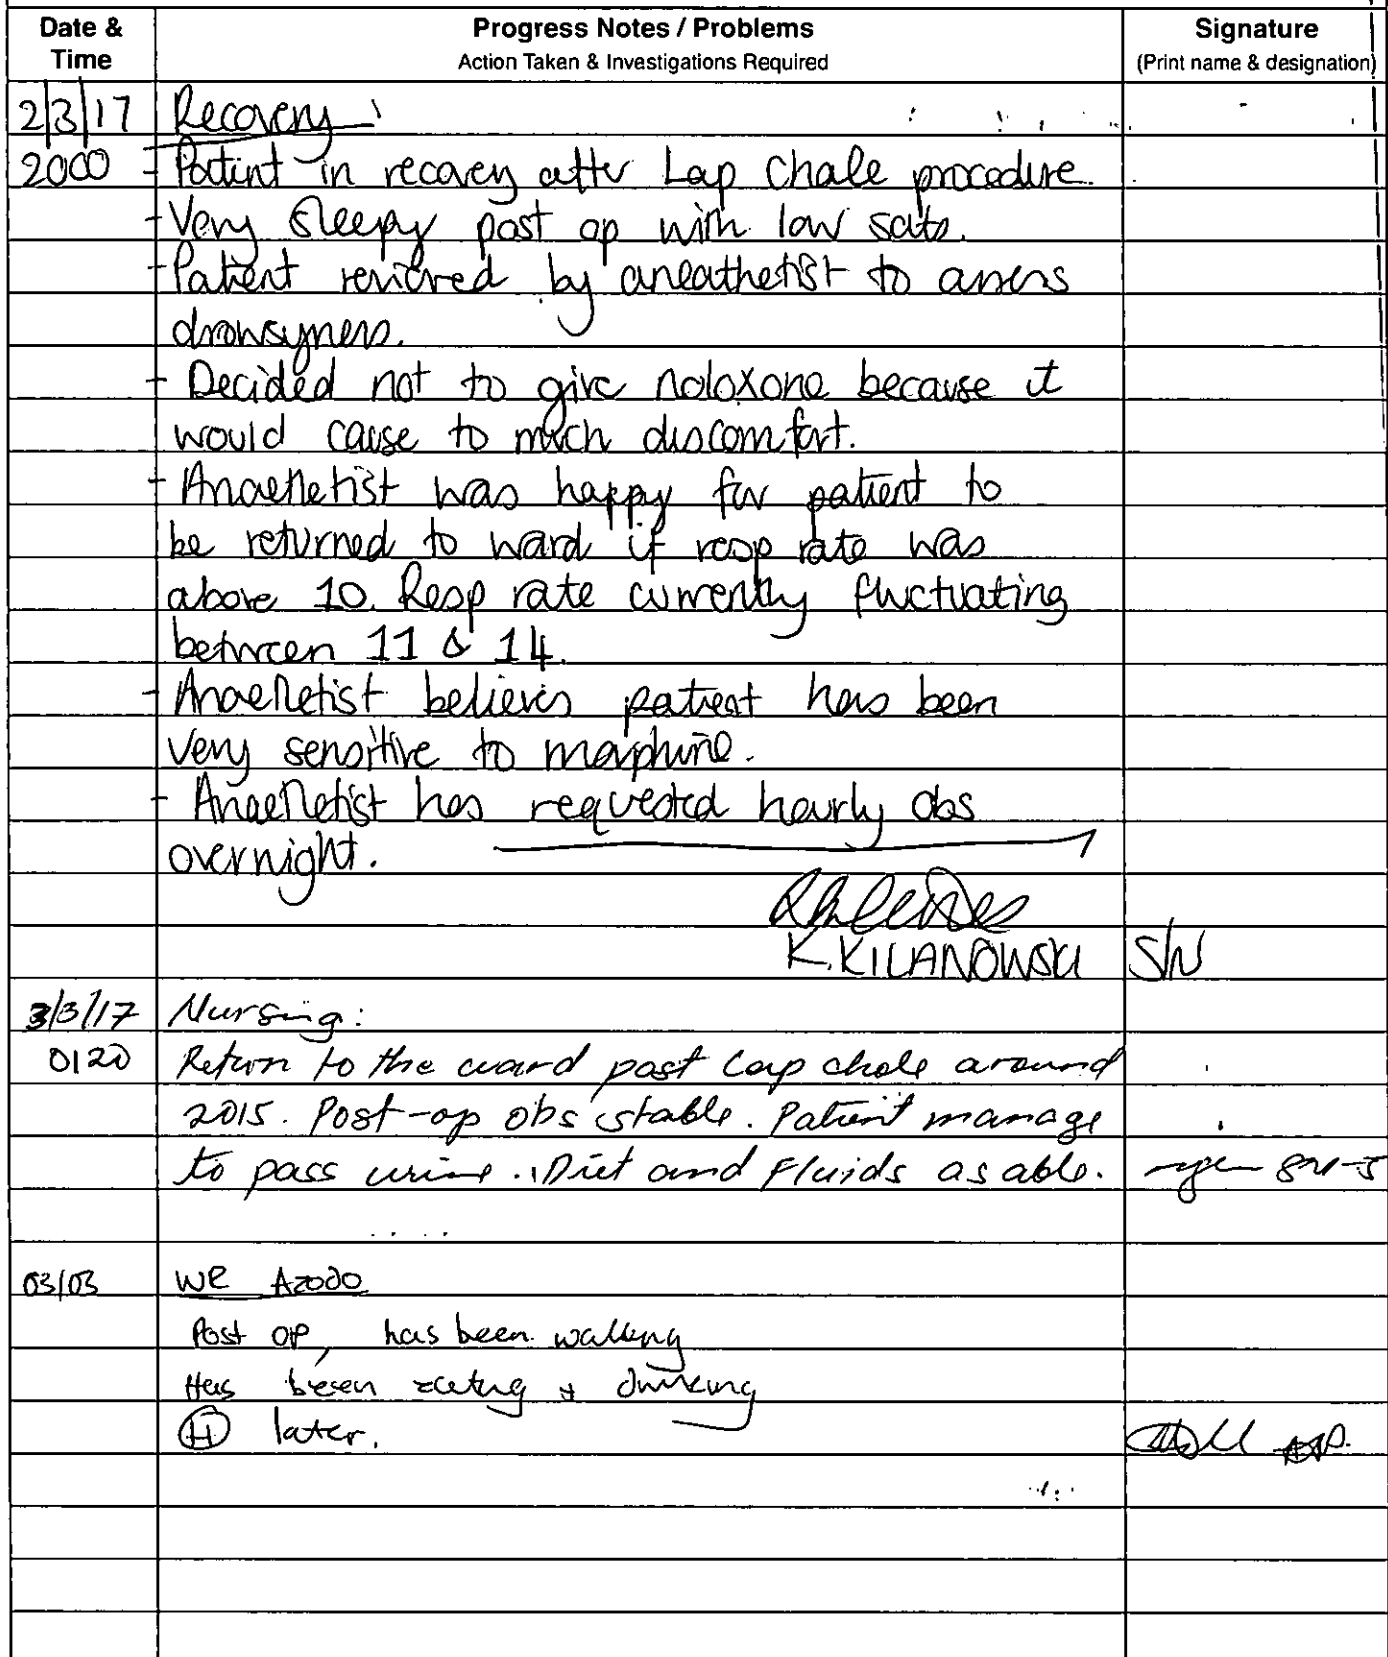 Date & Time Progress Notes / Problems Signature
Action Taken & Investigations Required (Print name & designation)
2/3/17 Recovery:
2000 - Patient in recovery after Lap Chole procedure.
- Very sleepy post op with low sats.
- Patient reviewed by aneathetist to assess
drowsyness.
- Decided not to give noloxone because it
would cause to much discomfort.
- Anaethetist was happy for patient to
be returned to ward if resp rate was
above 10. Resp rate currently fluctuating
between 11 & 14.
- Anaethetist believes patient has been
very sensitive to morphine.
- Anaethetist has requested hourly obs
overnight.
K. KILANOWSKI S/N
3/3/17 Nursing:
0120 Return to the ward post Lap chole around
2015. Post-op obs stable. Patient manage
to pass urine. Diet and Fluids as able.
03/03 WR Azodo
Post OP, has been walking
Has been eating + drinking
(H) later.